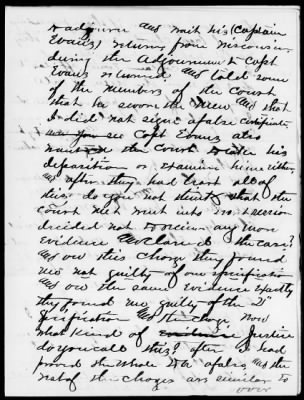 to adjourn and wait his (Captain
Evans) return from Wisconsin
during the Adjournment Capt
Evans returned and told some
of the members of the Court
that he swore the Men and that
I did not sign a false certificate
you see Capt Evans also
wanted the Court to take his
deposition or examine him either
and after they had heard all of
this do you not think that the
court met went into secret session
decided not to receive any more
Evidence and closed the case?
and on this charge they found
me not guilty of one specification
and on the same evidence exactly
they found me guilty of the 2d
specification and the charge now
what kind of Justice
do you call this? after I had
proved the whole to be false and the
rest of the charges are similar to
over